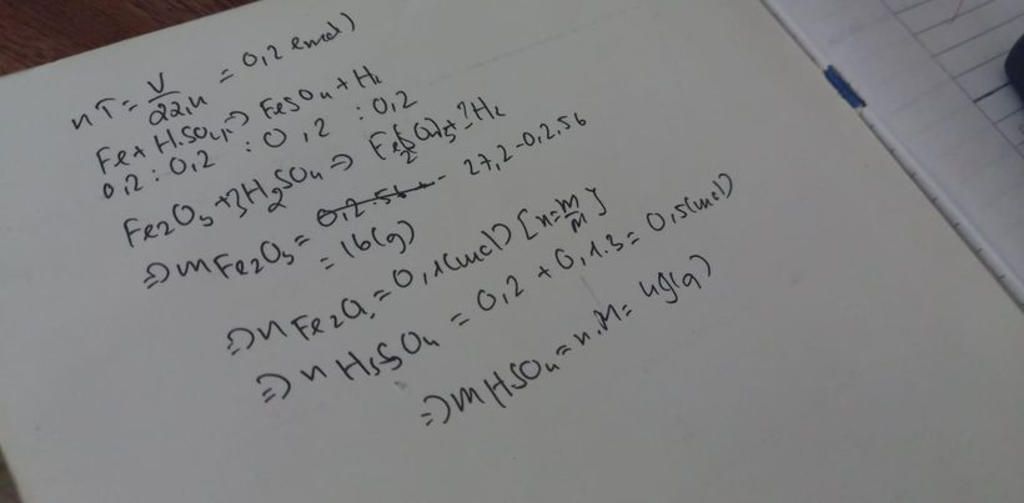 nT = V/22,4 = 0,2 (mol)
Fe + H2SO4 => FeSO4 + H2
0,2 : 0,2 : 0,2 : 0,2
Fe2O3 + 3H2SO4 => Fe2(SO4)3 + ?H2
=> mFe2O3 = 27,2 - 0,2.56
= 16(g)
=> nFe2O3 = 0,1(mol) [n = m/M]
=> nH2SO4 = 0,2 + 0,1.3 = 0,5(mol)
=> mH2SO4 = n.M = 49(g)